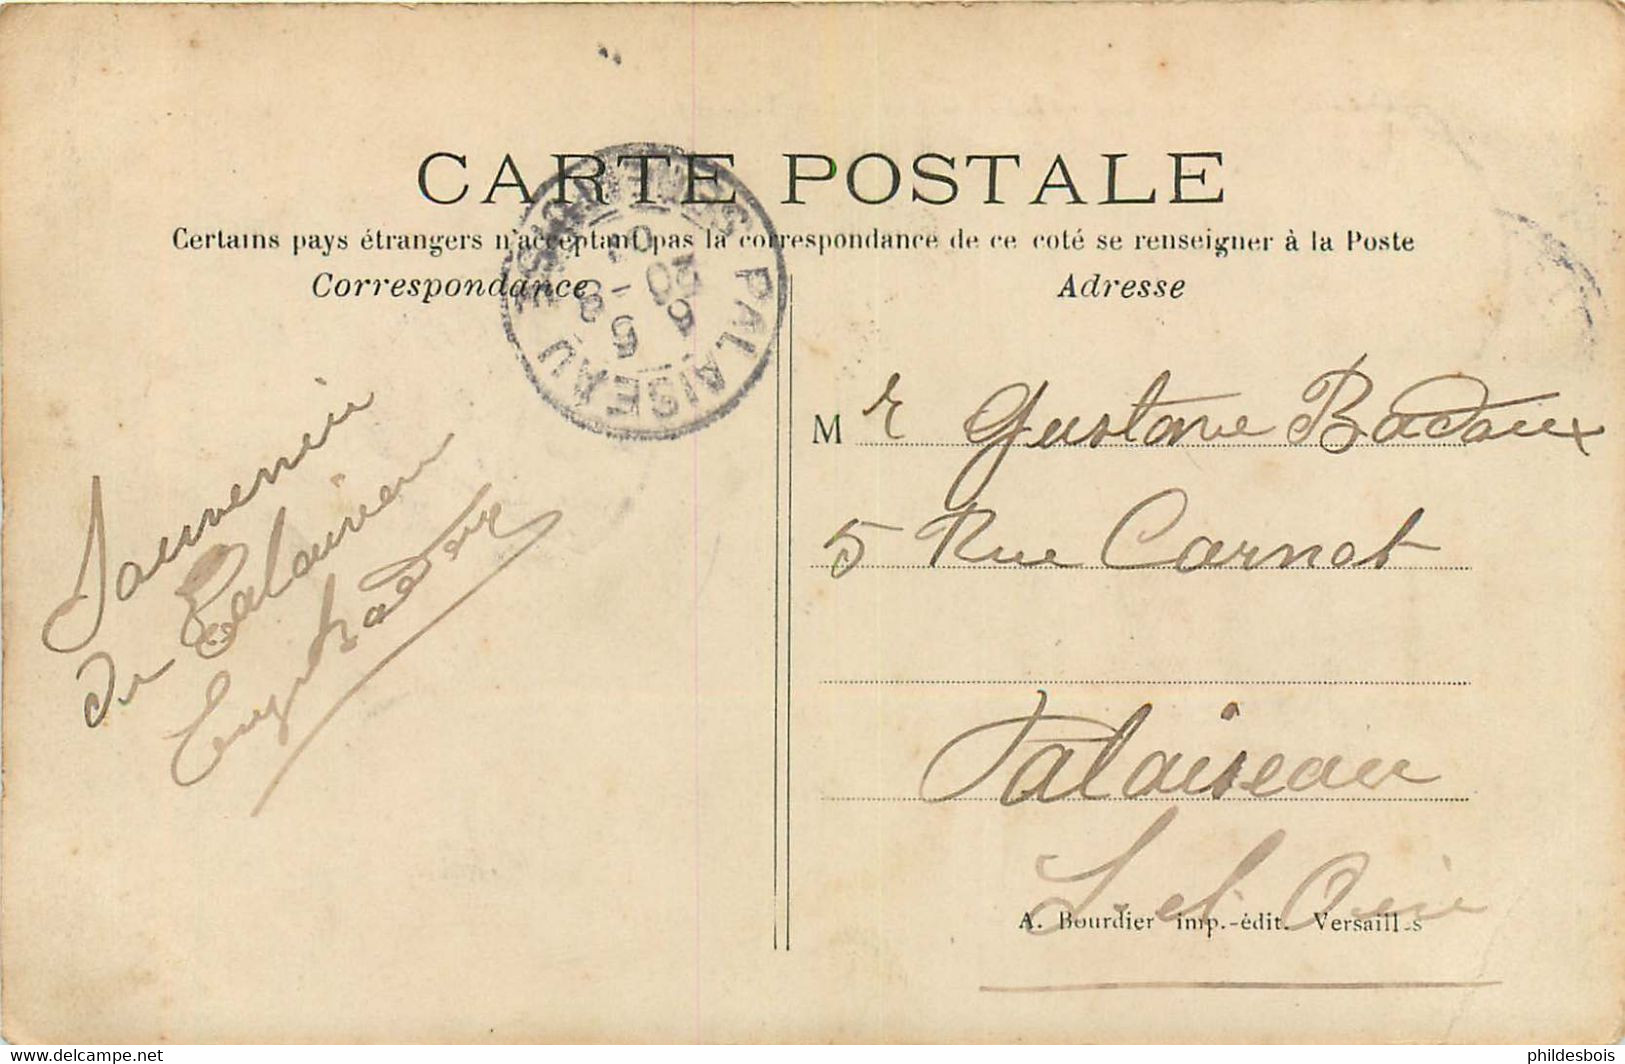 CARTE POSTALE
Certains pays étrangers n'acceptant pas la correspondance de ce coté se renseigner à la Poste
Correspondance
Adresse
PALAISEAU
Souvenir
de Palaiseau
M r Gustave Badoux
5 Rue Carnot
Palaiseau
S. et Oise
A. Bourdier imp.-édit. Versaill s
www.delcampe.net
phildesbois